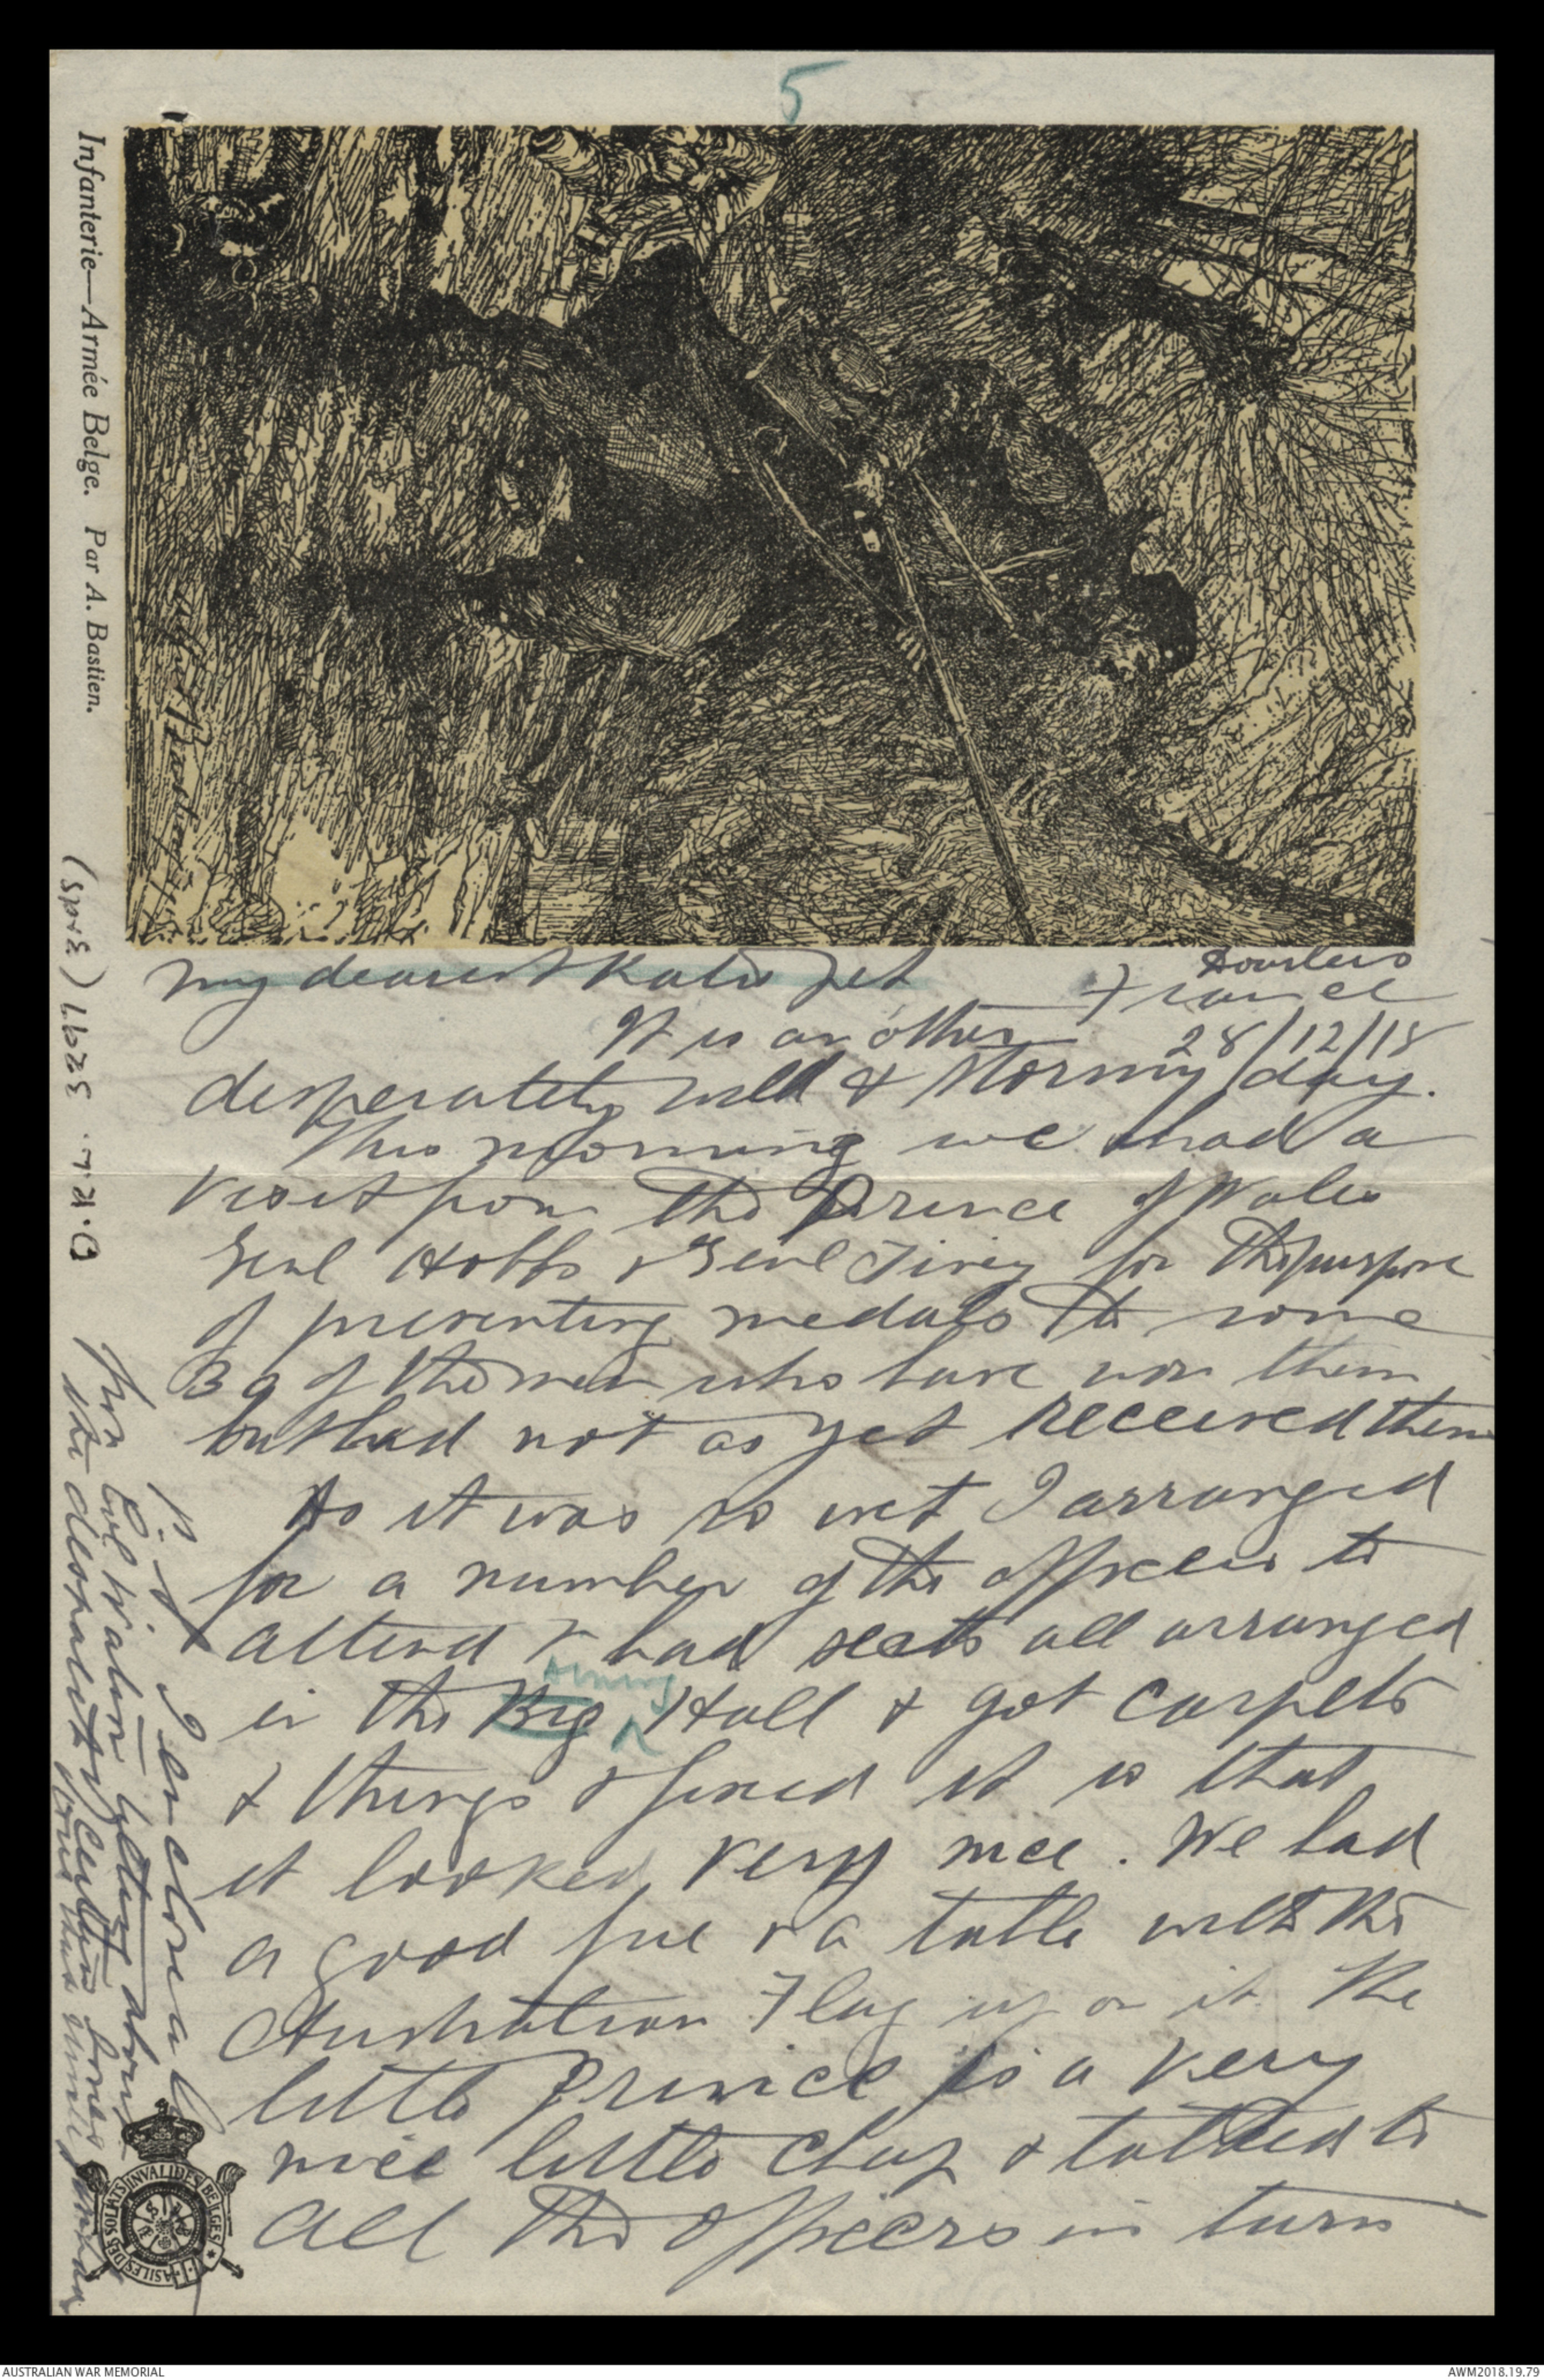 5
Infanterie—Armée Belge. Par A. Bastien.
my dearest Kate Jet
Dourlers
France
28/12/18
It is another
desperately wild & stormy day.
This morning we had a
visit from the Prince of Wales
Genl Hobbs & Genl Tivey for the purpose
of presenting medals to some
39 of the men who have won them
but had not as yet received them
As it was so wet I arranged
for a number of the officers to
attend & had seats all arranged
in the Big Dining Hall & got carpets
& things & fixed it so that
it looked very nice. We had
a good fire & a table with the
Australian Flag up on it. The
little Prince is a very
nice little chap & talked to
all the officers in turn
(3rds) 3297
P.S. I enclose a
from Evl
the desperately
ASILES DES SOLDATS INVALIDES BELGES
AUSTRALIAN WAR MEMORIAL
AWM2018.19.79